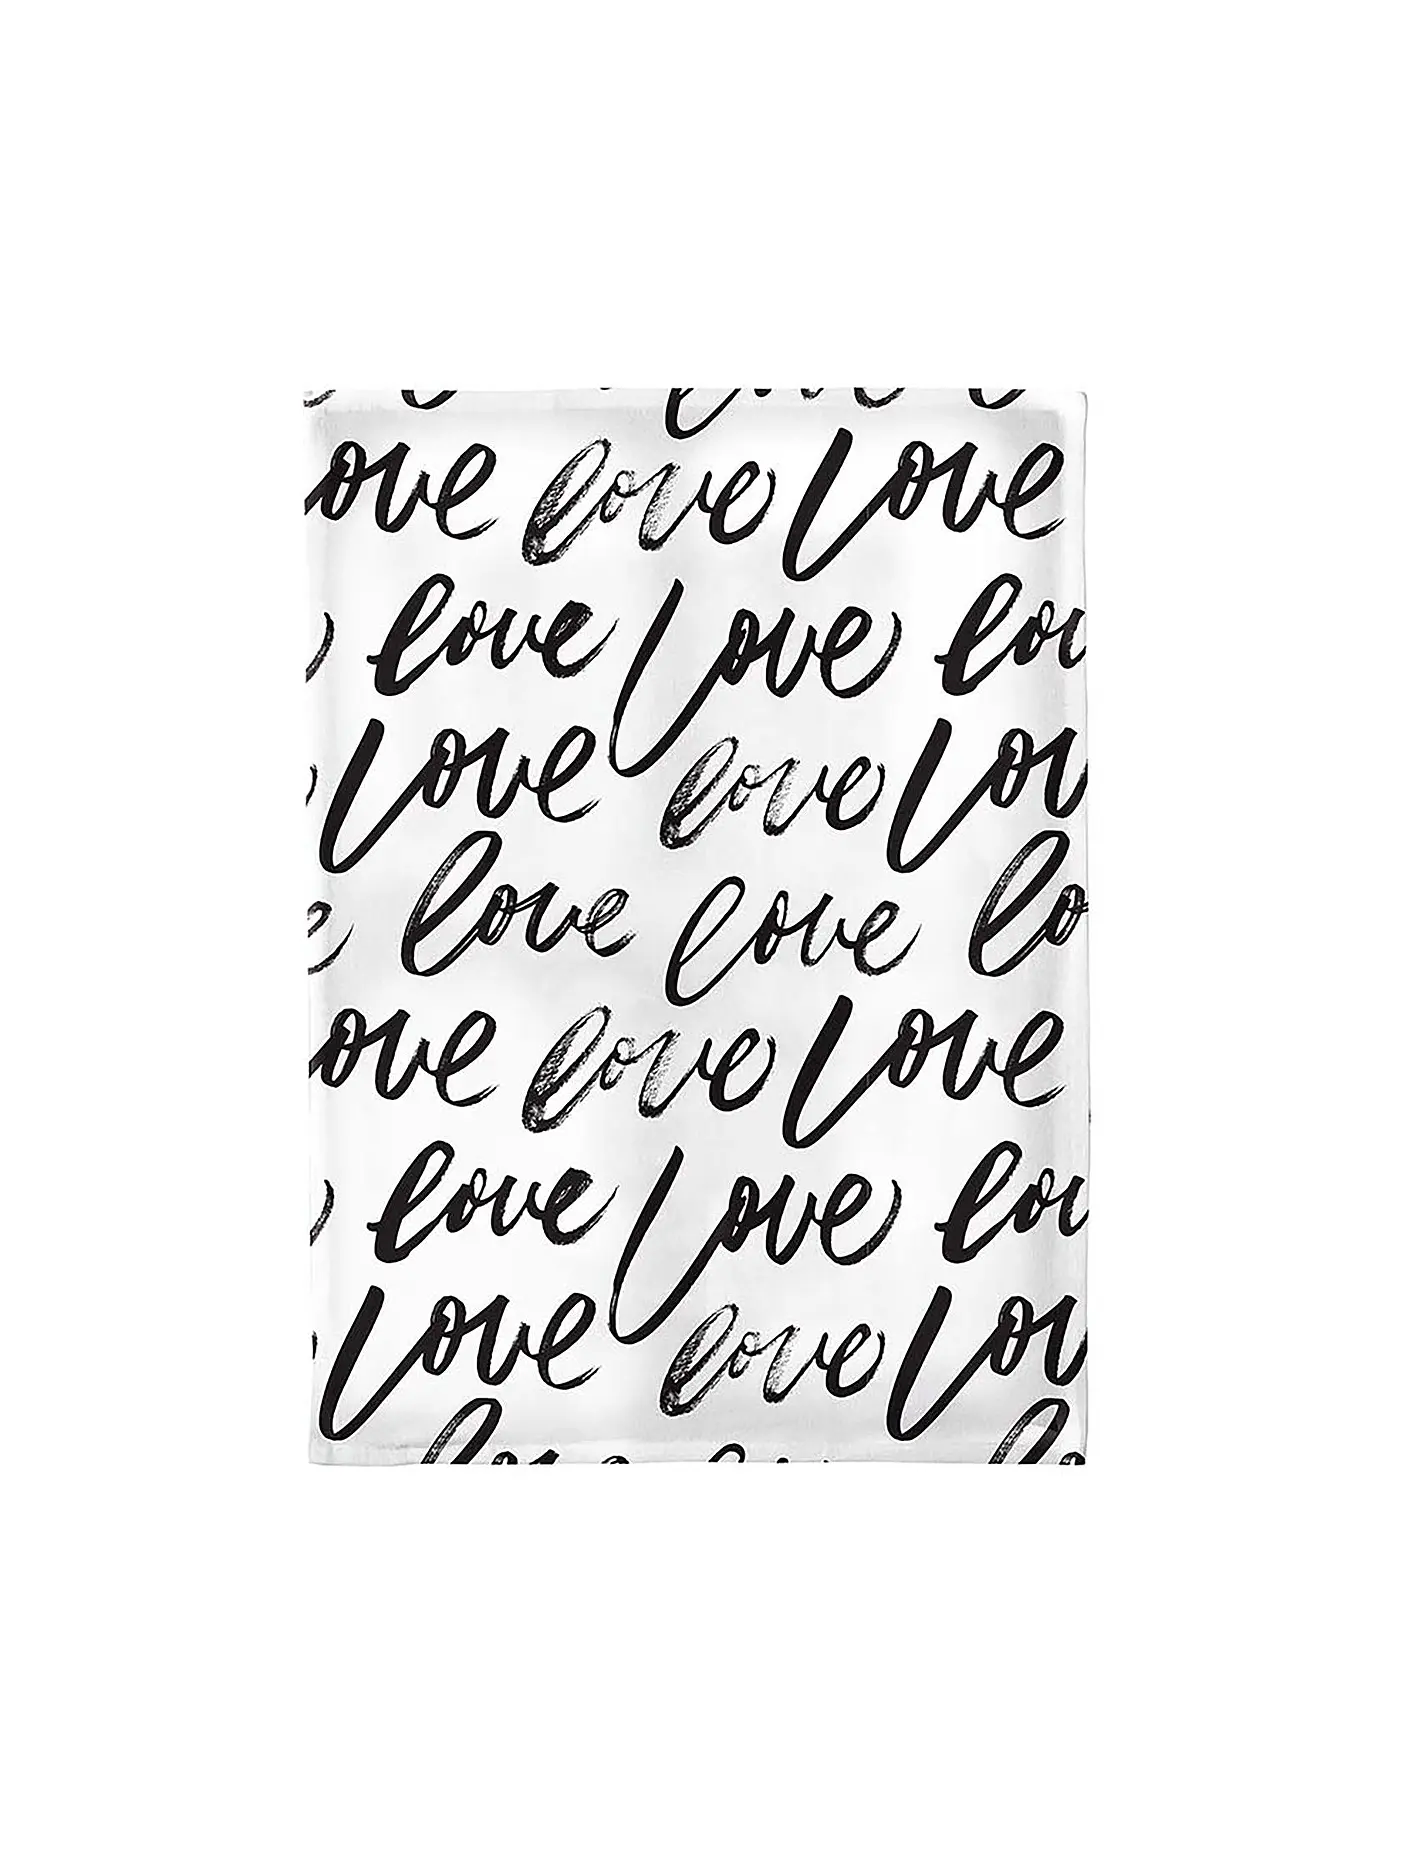 ove love Love
love Love lov
Love love Lov
love love lo
ove love Love
love Love lov
Love love Lov